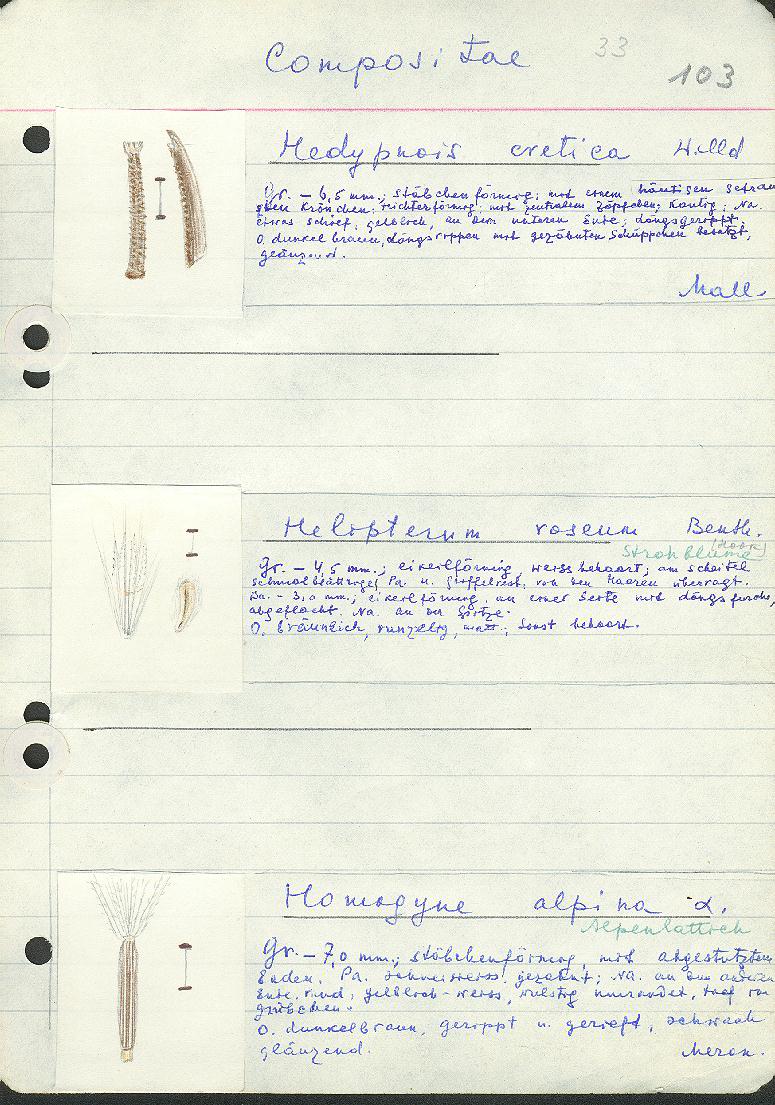 Compositae 33 103
Hedypnois cretica Willd
Gr. – 6,5 mm.; stäbchenförmig; mit einem häutigen
Krönchen; trichterförmig; mit zentralem Zäpfchen; kantig; Na.
etwas schief, gelblich, an dem unteren Ende; längsgerippt.
O. dunkelbraun, längsrippen mit gezähnten Schüppchen besetzt,
glänzend.
Mall.
Helipterum roseum Benth.
Strohblume
Gr. – 4,5 mm.; eikerlförmig, weiss behaart; am scheitel
schmalblättriges Pa. u. Griffelrest, von den Haaren überragt.
Sa. – 3,0 mm.; eikerlförmig, an einer Seite mit längsfurche,
abgeflacht. Na. an der Spitze.
O. bräunlich, runzelig, matt; sonst behaart.
Homogyne alpina L.
Alpenlattich
Gr. – 7,0 mm.; stäbchenförmig, mit abgestutzten
Enden. Pa. schneeweiss, gezähnt; Na. an dem anderen
Ende. rund, gelblich-weiss, wulstig umrandet, tief im
grübchen.
O. dunkelbraun, gerippt u. gerieft, schwach
glänzend.
Meran.